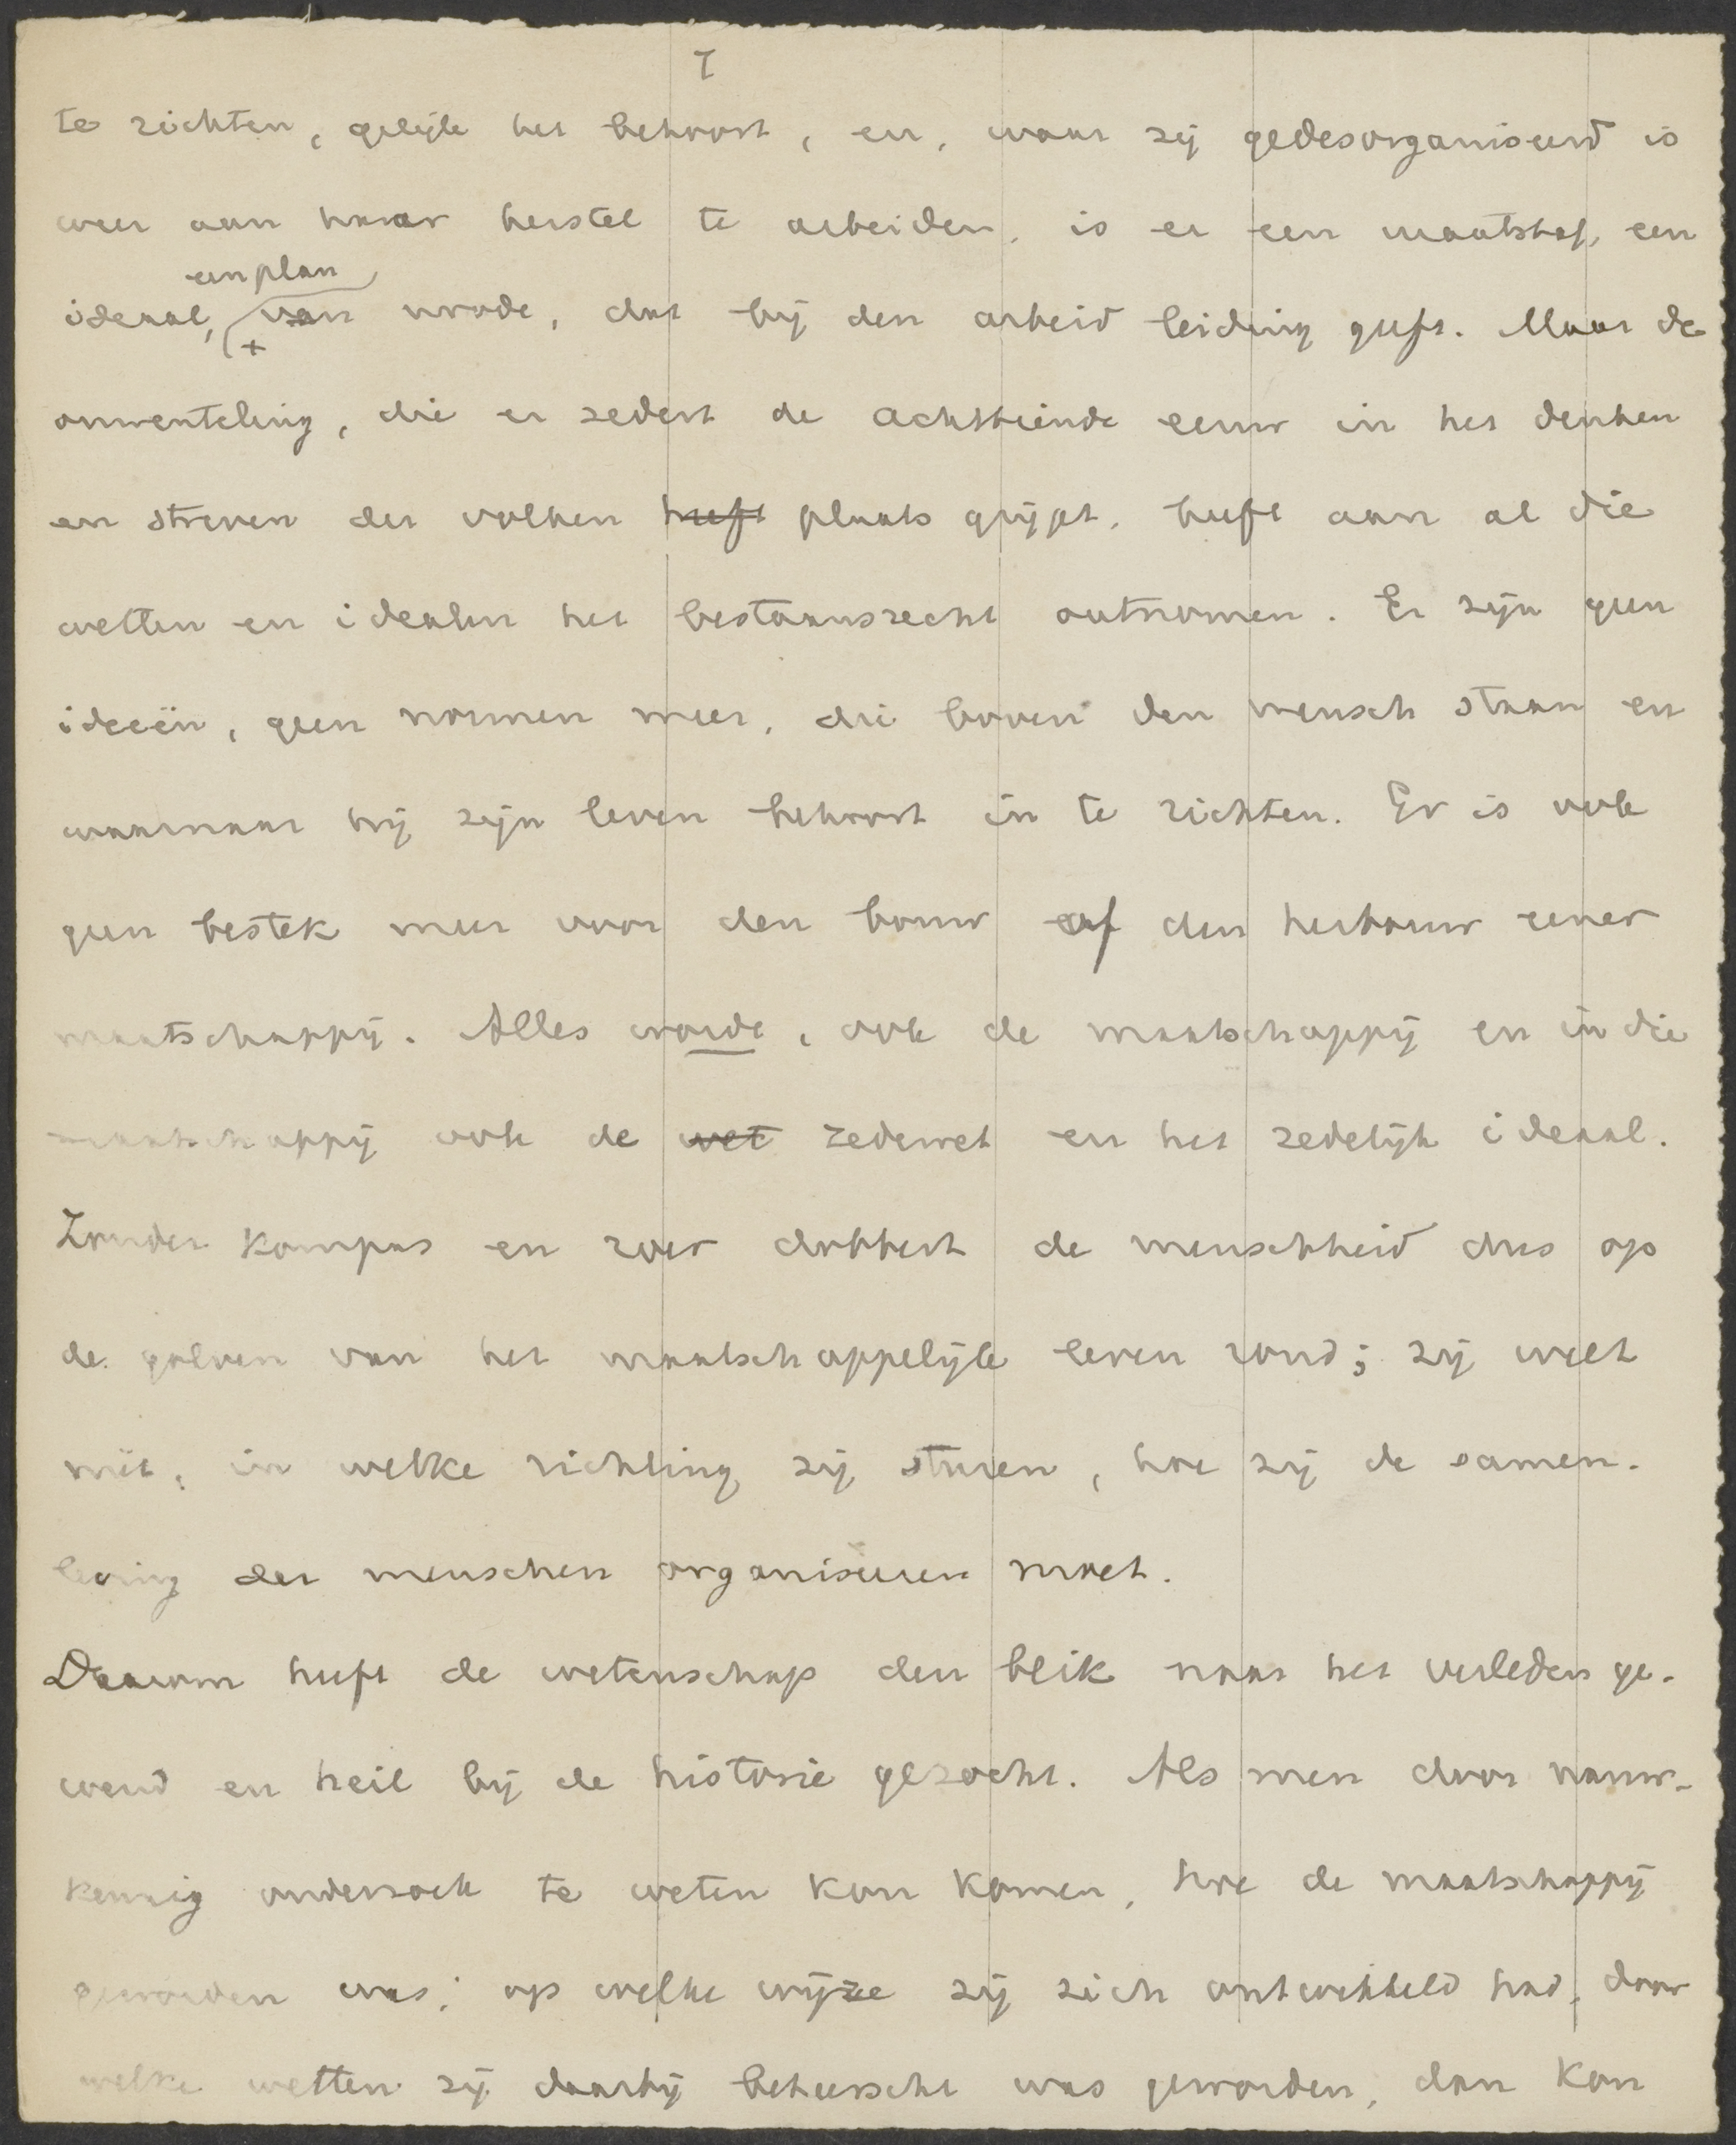 7
te richten, gelijk het behoort, en, waar zij gedesorganiseerd is
weer aan haar herstel te arbeiden, is er een maatstaf, een
een plan
ideaal, van orde, dat bij den arbeid leiding geeft. Maar de
omwenteling, die er sedert de achttiende eeuw in het denken
en streven der volken heeft plaats grijpt, heeft aan al die
wetten en idealen het bestaansrecht ontnomen. Er zijn geen
ideeën, geen normen meer, die boven den mensch staan en
waarnaar hij zijn leven behoort in te richten. Er is ook
geen bestek meer voor den bouw of den herbouw eener
maatschappij. Alles wordt, ook de maatschappij en in die
maatschappij ook de wet zedewet en het zedelijk ideaal.
Zonder kompas en roer dobbert de menschheid dus op
de golven van het maatschappelijk leven rond; zij weet
niet, in welke richting zij sturen, hoe zij de samen-
leving der menschen organiseeren moet.
Daarom heeft de wetenschap den blik naar het verleden ge-
wend en heil bij de historie gezocht. Als men door nauw-
keurig onderzoek te weten kon komen, hoe de maatschappij
geworden was; op welke wijze zij zich ontwikkeld had, door
welke wetten zij daarbij beheerscht was geworden, dan kon